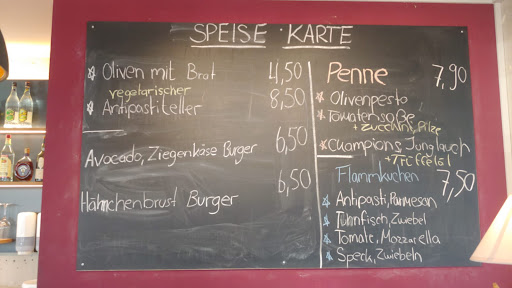 SPEISE KARTE
* Oliven mit Brot 4,50
vegetarischer
* Antipastiteller 8,50
Avocado, Ziegenkäse Burger 6,50
Hähnchenbrust Burger 6,50
Penne 7,90
* Olivenpesto
* Tomatensoße
+ Zucchini, Pilze
* Champions, Junglauch
+ Trüffelöl
Flammkuchen 7,50
* Antipasti, Parmesan
* Thunfisch, Zwiebel
* Tomate, Mozzarella
* Speck, Zwiebeln